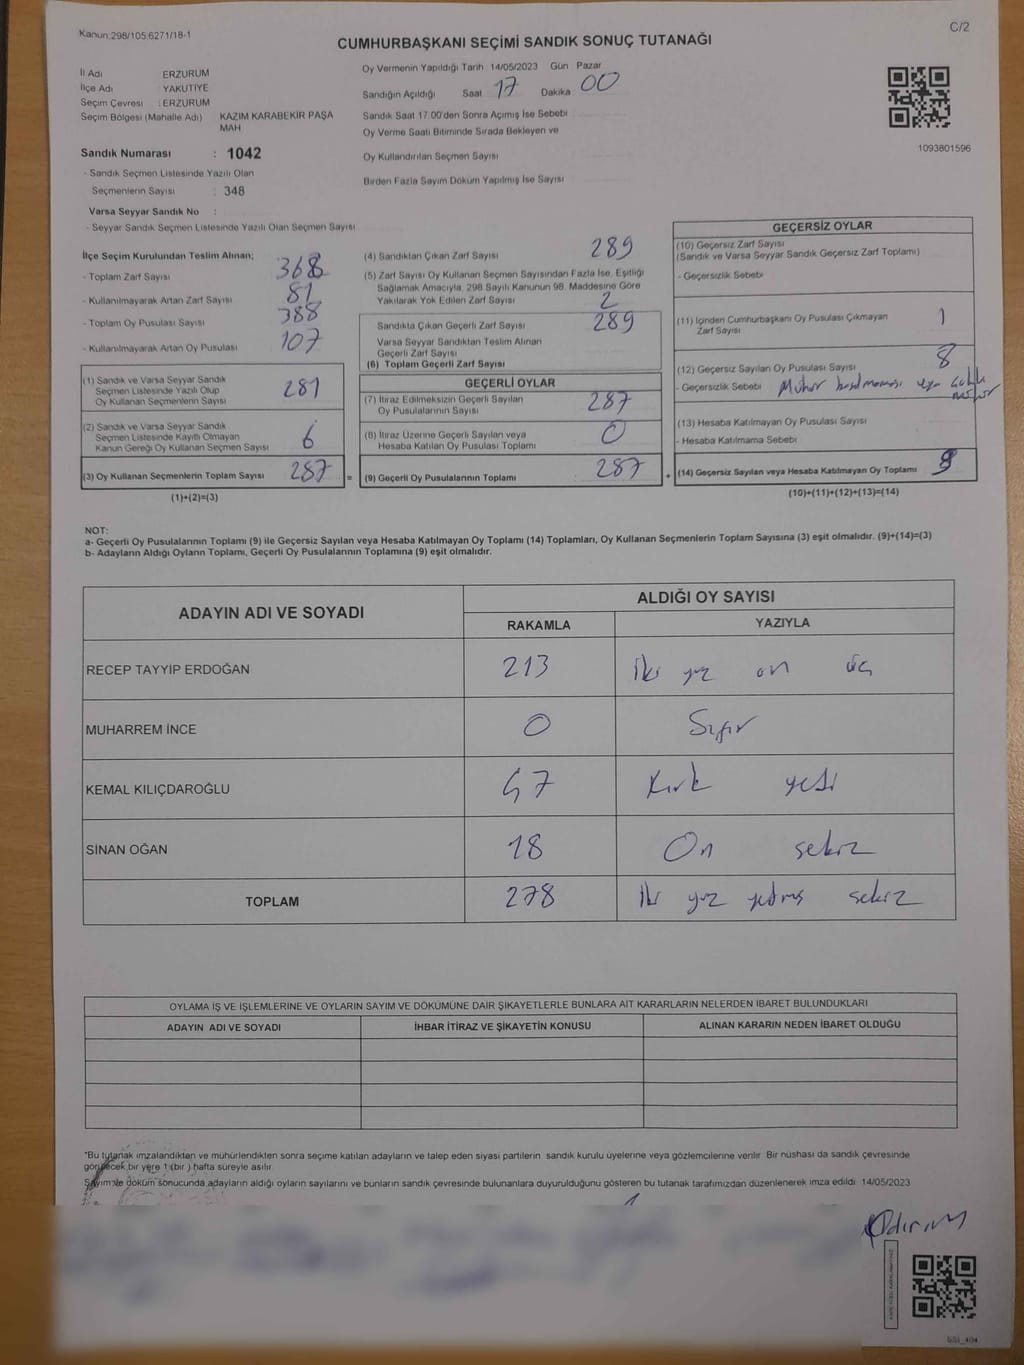 Kanun:298/105,6271/18-1
C/2
CUMHURBAŞKANI SEÇİMİ SANDIK SONUÇ TUTANAĞI
İl Adı ERZURUM
İlçe Adı YAKUTİYE
Seçim Çevresi : ERZURUM
Seçim Bölgesi (Mahalle Adı) KAZIM KARABEKİR PAŞA
MAH
Sandık Numarası : 1042
- Sandık Seçmen Listesinde Yazılı Olan
Seçmenlerin Sayısı : 348
Varsa Seyyar Sandık No :
- Seyyar Sandık Seçmen Listesinde Yazılı Olan Seçmen Sayısı
Oy Vermenin Yapıldığı Tarih 14/05/2023 Gün Pazar
Sandığın Açıldığı Saat 17 Dakika 00
Sandık Saat 17:00'den Sonra Açımış İse Sebebi
Oy Verme Saati Bitiminde Sırada Bekleyen ve
Oy Kullandırılan Seçmen Sayısı
Birden Fazla Sayım Döküm Yapılmış İse Sayısı
1093801596
İlçe Seçim Kurulundan Teslim Alınan;
- Toplam Zarf Sayısı 368
- Kullanılmayarak Artan Zarf Sayısı 81
- Toplam Oy Pusulası Sayısı 388
- Kullanılmayarak Artan Oy Pusulası 107
(1) Sandık ve Varsa Seyyar Sandık
Seçmen Listesinde Yazılı Olup
Oy Kullanan Seçmenlerin Sayısı 281
(2) Sandık ve Varsa Seyyar Sandık
Seçmen Listesinde Kayıtlı Olmayan
Kanun Gereği Oy Kullanan Seçmen Sayısı 6
(3) Oy Kullanan Seçmenlerin Toplam Sayısı 287 =
(1)+(2)=(3)
(4) Sandıktan Çıkan Zarf Sayısı 289
(5) Zarf Sayısı Oy Kullanan Seçmen Sayısından Fazla İse, Eşitliği
Sağlamak Amacıyla, 298 Sayılı Kanunun 98. Maddesine Göre
Yakılarak Yok Edilen Zarf Sayısı 2
Sandıkta Çıkan Geçerli Zarf Sayısı 289
Varsa Seyyar Sandıktan Teslim Alınan
Geçerli Zarf Sayısı
(6) Toplam Geçerli Zarf Sayısı
GEÇERLİ OYLAR
(7) İtiraz Edilmeksizin Geçerli Sayılan
Oy Pusulalarının Sayısı 287
(8) İtiraz Üzerine Geçerli Sayılan veya
Hesaba Katılan Oy Pusulası Toplamı 0
(9) Geçerli Oy Pusulalarının Toplamı 287 +
GEÇERSİZ OYLAR
(10) Geçersiz Zarf Sayısı
(Sandık ve Varsa Seyyar Sandık Geçersiz Zarf Toplamı)
- Geçersizlik Sebebi
(11) İçinden Cumhurbaşkanı Oy Pusulası Çıkmayan
Zarf Sayısı 1
(12) Geçersiz Sayılan Oy Pusulası Sayısı 8
- Geçersizlik Sebebi Mühür basılmaması
(13) Hesaba Katılmayan Oy Pusulası Sayısı
- Hesaba Katılmama Sebebi
(14) Geçersiz Sayılan veya Hesaba Katılmayan Oy Toplamı
(10)+(11)+(12)+(13)=(14)
NOT:
a- Geçerli Oy Pusulalarının Toplamı (9) ile Geçersiz Sayılan veya Hesaba Katılmayan Oy Toplamı (14) Toplamları, Oy Kullanan Seçmenlerin Toplam Sayısına (3) eşit olmalıdır. (9)+(14)=(3)
b- Adayların Aldığı Oyların Toplamı, Geçerli Oy Pusulalarının Toplamına (9) eşit olmalıdır.
ADAYIN ADI VE SOYADI ALDIĞI OY SAYISI
RAKAMLA YAZIYLA
RECEP TAYYİP ERDOĞAN 213 İki yüz on üç
MUHARREM İNCE 0 Sıfır
KEMAL KILIÇDAROĞLU 47 Kırk yedi
SİNAN OĞAN 18 On sekiz
TOPLAM 278 İki yüz yetmiş sekiz
OYLAMA İŞ VE İŞLEMLERİNE VE OYLARIN SAYIM VE DÖKÜMÜNE DAİR ŞİKAYETLERLE BUNLARA AİT KARARLARIN NELERDEN İBARET BULUNDUKLARI
ADAYIN ADI VE SOYADI İHBAR İTİRAZ VE ŞİKAYETİN KONUSU ALINAN KARARIN NEDEN İBARET OLDUĞU
*Bu tutanak imzalandıktan ve mühürlendikten sonra seçime katılan adayların ve talep eden siyasi partilerin sandık kurulu üyelerine veya gözlemcilerine verilir. Bir nüshası da sandık çevresinde
görülecek bir yere 1 (bir ) hafta süreyle asılır.
Sayım ve döküm sonucunda adayların aldığı oyların sayılarını ve bunların sandık çevresinde bulunanlara duyurulduğunu gösteren bu tutanak tarafımızdan düzenlenerek imza edildi. 14/05/2023